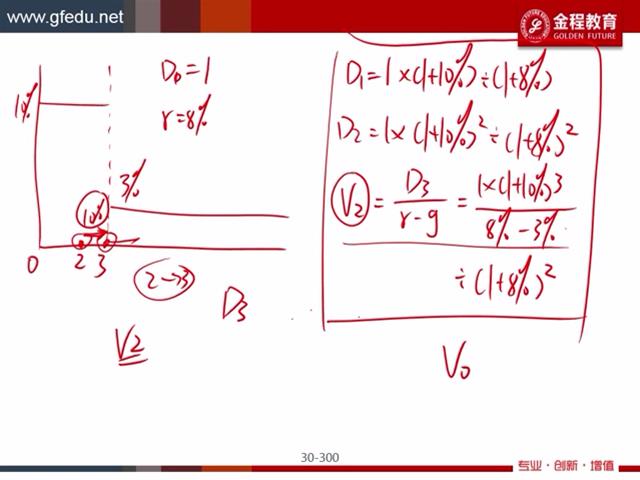 www.gfedu.net
金程教育
GOLDEN FUTURE
D₀=1
r=8%
10%
3%
10%
0
2
3
2→3
D₃
V2
D₁=1×(1+10%)÷(1+8%)
D₂=1×(1+10%)²÷(1+8%)²
V₂ = D₃/(r-g) = 1×(1+10%)³/(8%-3%)
÷(1+8%)²
V₀
30-300
专业·创新·增值